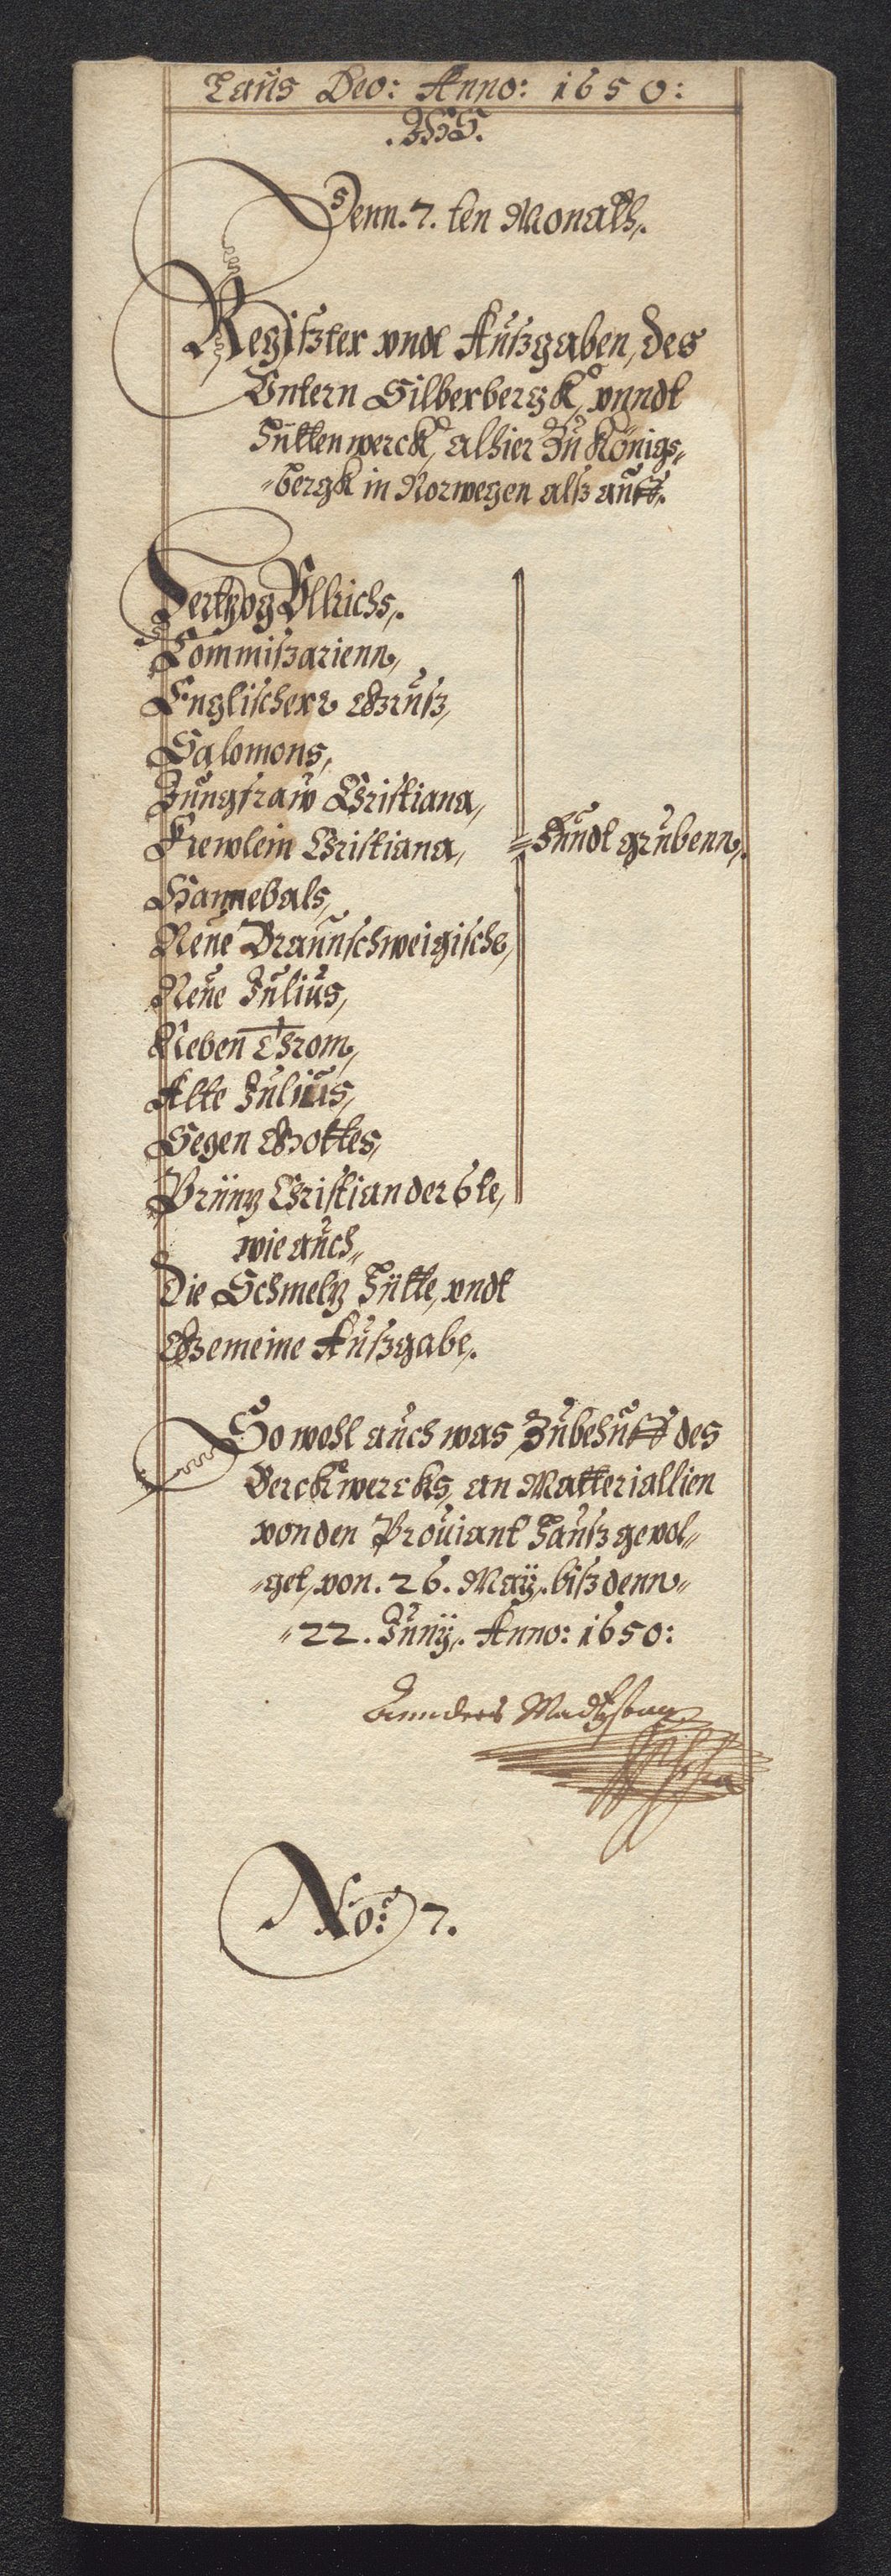 Laus Deo: Anno: 1650:
.IHS.
Denn. 7. ten Monath,.
Regißter vndt Außgaben, des
Vntern Silberbergk, vnndt
Hüttenwerck, alhier Zu Königs„
„bergk in Norwegen alß auff,.
Hertzog Vllrichs,.
Commißarienn,
Englischerr Gruß,
Salomons,
Jungfraw Christiana,
Frewlein Christiana,
Fundt grubenn,.
Hannebals,
Neue Braunschweigische,
Neue Julius,
Neben Throm,
Alte Julius,
Segen Gottes,
Printz Christian der 6te,
wie auch„
Die Schmeltz Hütte, vndt
Gemeine Außgabe,.
So wohl auch was Zubehuff des
Berckwercks, an Matteriallien
von den Prouiant Hauß gevol„
„get, von. 26. Maÿ,. biß denn„
„22. Junÿ,. Anno: 1650:
Annders Madtzsonn
No: 7.